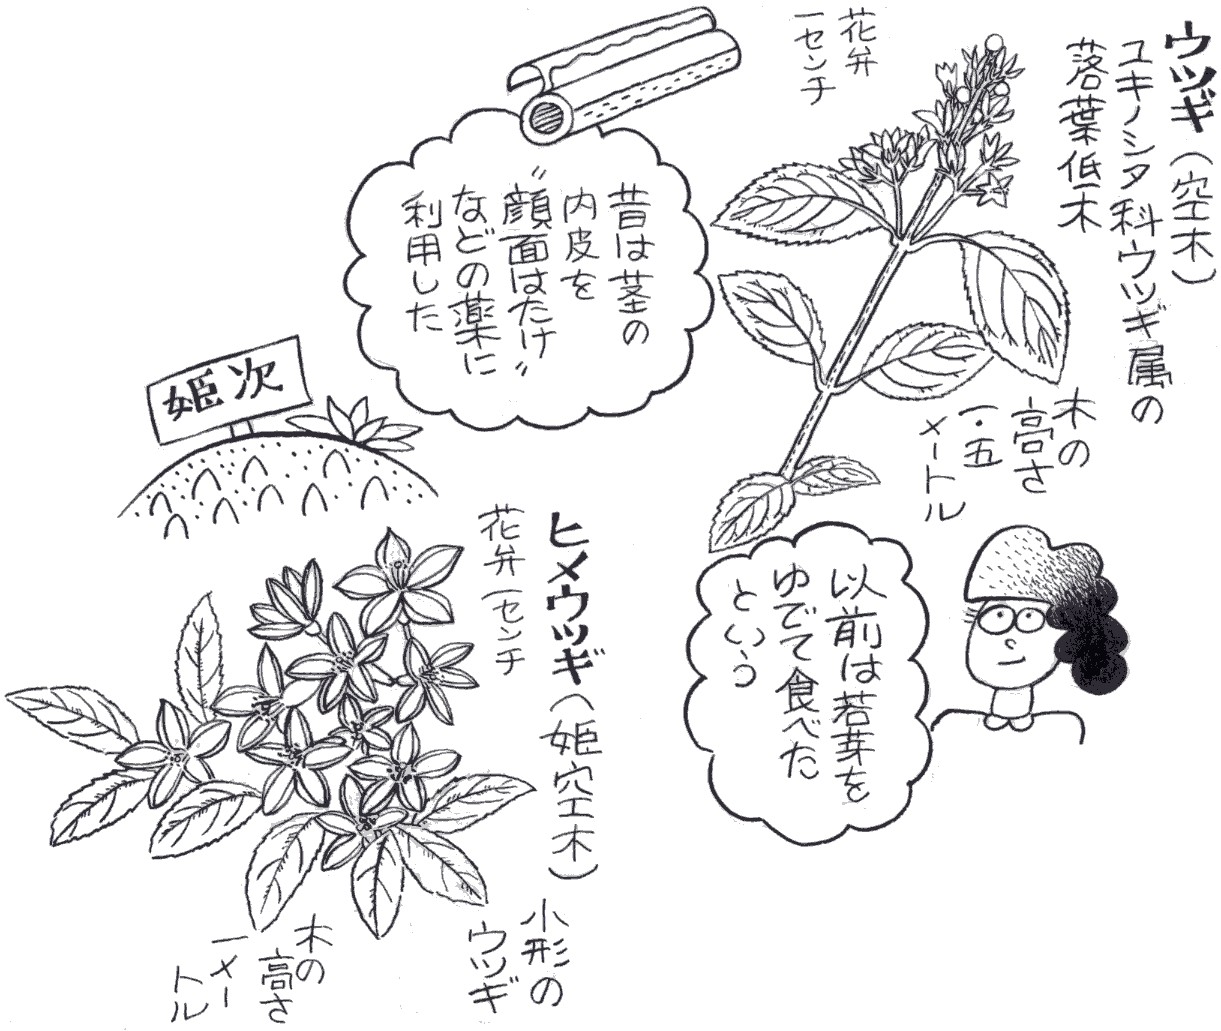 ウツギ（空木）
ユキノシタ科ウツギ属の
落葉低木
花弁
一センチ
木の
高さ
一・五
メートル
昔は茎の
内皮を
〝顔面はたけ〟
などの薬に
利用した
以前は若芽を
ゆでて食べた
という
姫次
ヒメウツギ（姫空木）
花弁一センチ
小形の
ウツギ
木の
高さ
一メー
トル